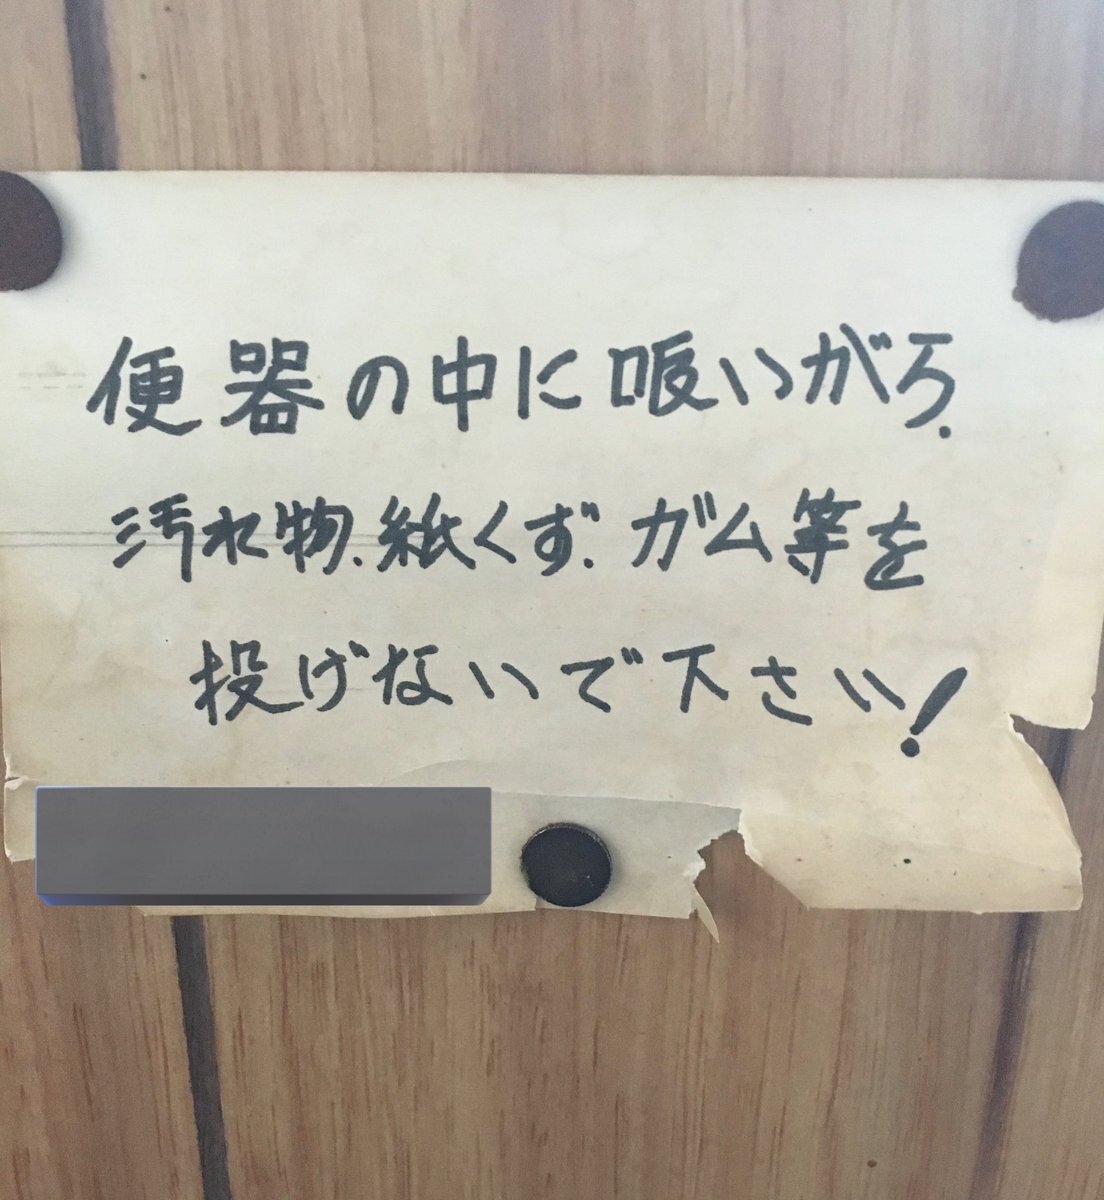 便器の中に吸いがら、
汚れ物、紙くず、ガム等を
投げないで下さい!